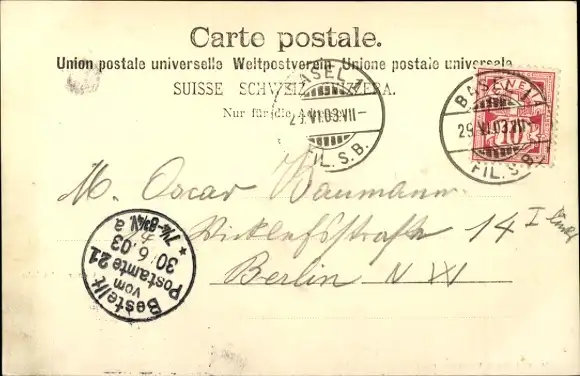 Carte postale.
Union postale universelle Weltpostverein Unione postale universale
SUISSE SCHWEIZ SVIZZERA.
Nur für die Adresse.
BASEL 1
29.VI.03.VII-
FIL. S. B.
29.VI.03.VII-
FIL. S. B.
10
M. Oscar Baumann
Wicklefsstraße 14 I
Berlin N W
Bestellt
vom
Postamte 21
30.6.03